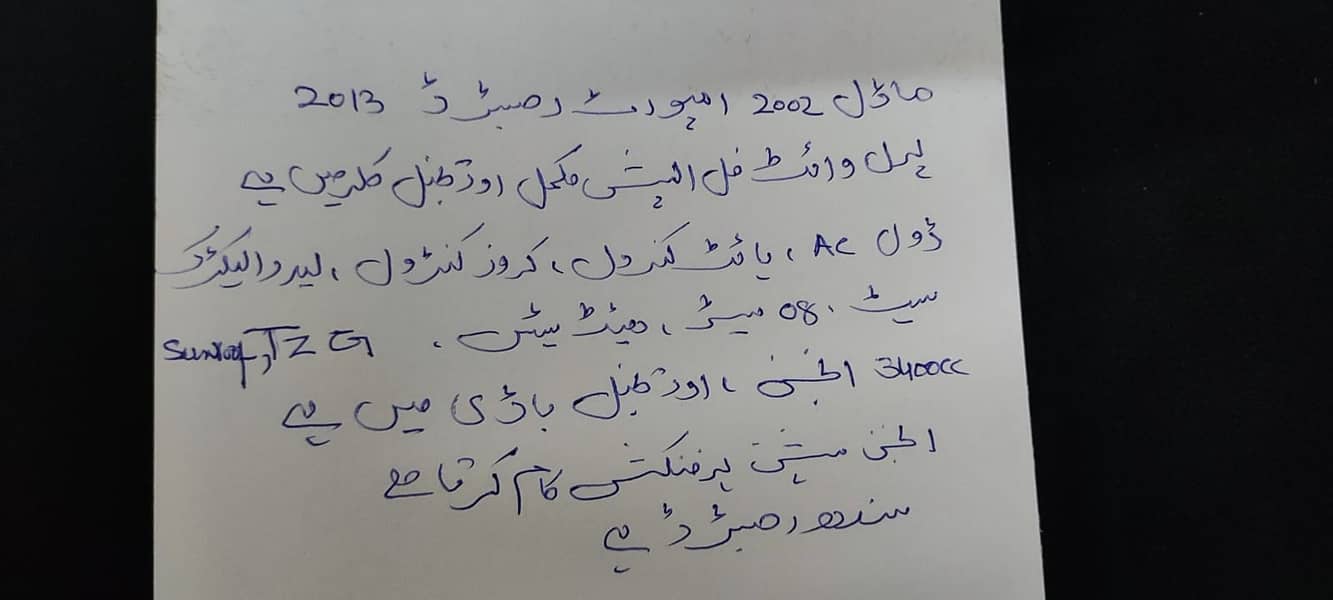 ماڈل 2002 امپورٹ رجسٹرڈ 2013
پرل وائٹ فل آپشن مکمل اورجنل کلر میں ہے
ڈول AC، ہائٹ کنٹرول، کروز کنٹرول، لیدر الیکٹرک
سیٹ، 08 سیٹر، ہیٹڈ سیٹس، Sunroof, TZ G
3400cc انجن، اورجنل باڈی میں ہے
انجن مشین پرفیکشن کام کرتا ہے
سندھ رجسٹرڈ ہے